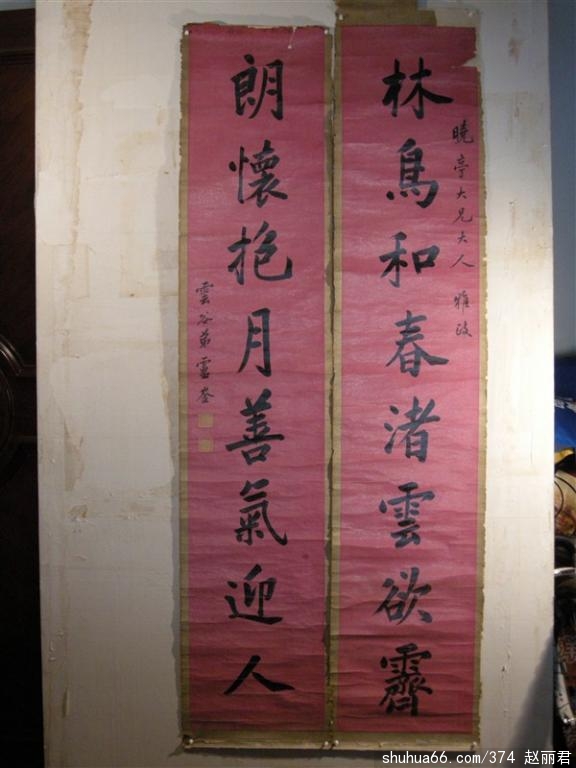 曉亭大兄大人 雅政
林鳥和春渚雲欲霽
朗懷抱月善氣迎人
雲谷弟
shuhua66.com/374 赵丽君